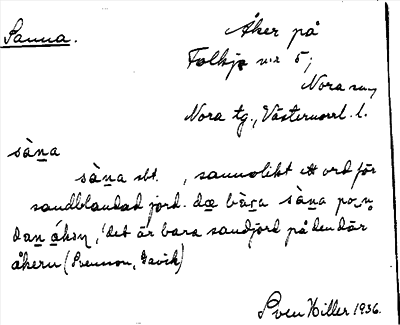 Sanna.
Åker på
Folkja nr 5,
Nora sn,
Nora tg., Västernorrl. l.
sàna
sàna sbt. , sannolikt ett ord för
sandblandad jord. dæ bàra sàna på
dan åkən, 'det är bara sandjord på den där
åkern (Svensson, Gavik)
Sven Hiller 1936.